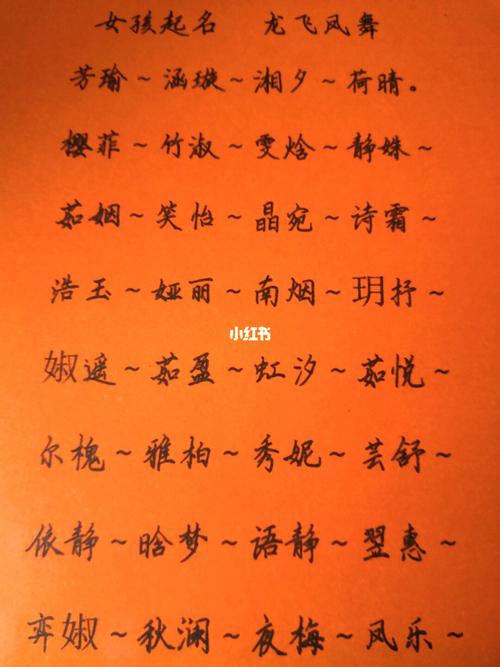 女孩起名 龙飞凤舞
芳瑜~涵璇~湘夕~荷晴。
樱菲~竹淑~雯焓~静姝~
茹姻~笑怡~晶宛~诗霜~
浩玉~娅丽~南烟~玥抒~
小红书
婌遥~茹盈~虹汐~茹悦~
尔槐~雅柏~秀妮~芸舒~
依静~晗梦~语静~翌惠~
弈婌~秋澜~夜梅~风乐~